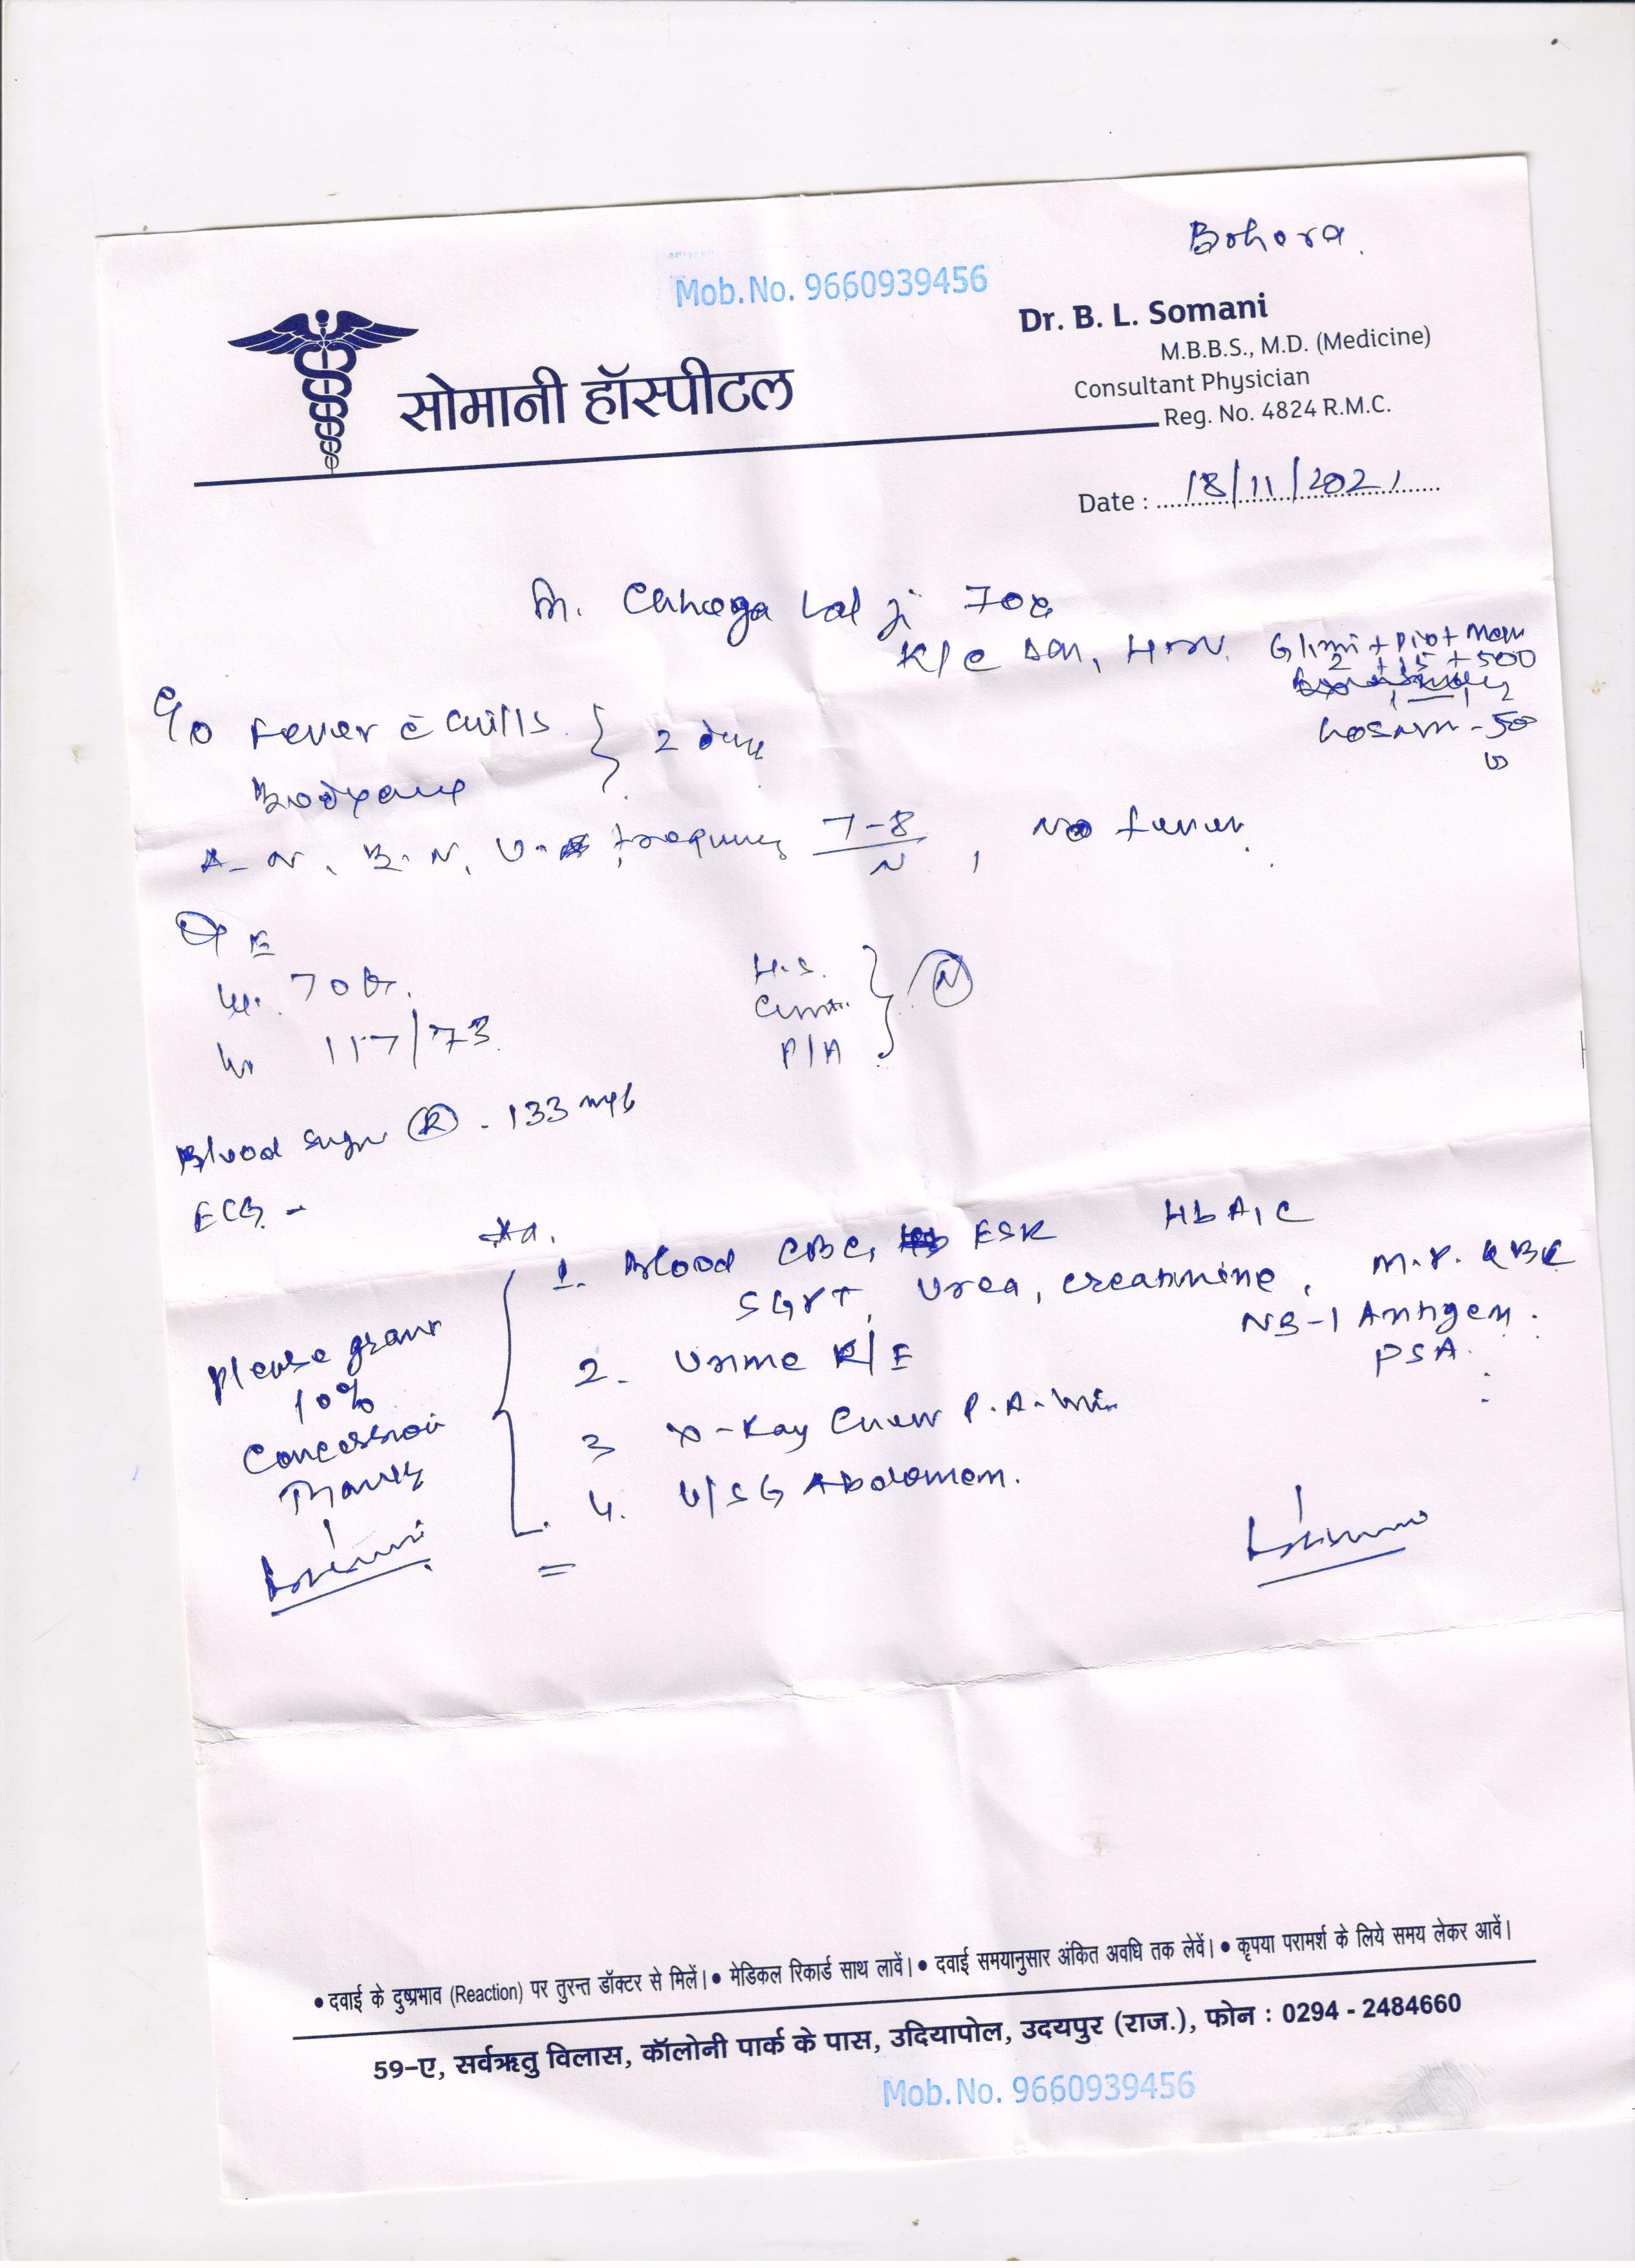 Bohora.
Mob.No. 9660939456
Dr. B. L. Somani
M.B.B.S., M.D. (Medicine)
Consultant Physician
Reg. No. 4824 R.M.C.
सोमानी हॉस्पीटल
Date : 18/11/2021
Lal ji 70
K/c DM, HTN. Glimi + Pio + Mem
2 + 15 + 500
Losam - 50
C/o Fever c chills } 2 days
Bodyache
A - N, B. N, U. frequency 7-8/N, No fever.
O/E
wt. 70
H.S.
117/73
P/A } N
Blood Sugar (R) - 133 mg%
ECG -
1. Blood CBC, ESR HbA1C
SGPT, Urea, creatinine, M.P. QBC
NS-1 Antigen.
PSA.
2. Urine R/E
3 X-Ray Chest P.A. View
4. U/SG Abdomen.
Please grant
10%
Concession
Thanks
• दवाई के दुष्प्रभाव (Reaction) पर तुरन्त डॉक्टर से मिलें। • मेडिकल रिकार्ड साथ लावें। • दवाई समयानुसार अंकित अवधि तक लेवें। • कृपया परामर्श के लिये समय लेकर आवें।
59-ए, सर्वऋतु विलास, कॉलोनी पार्क के पास, उदियापोल, उदयपुर (राज.), फोन : 0294 - 2484660
Mob.No. 9660939456